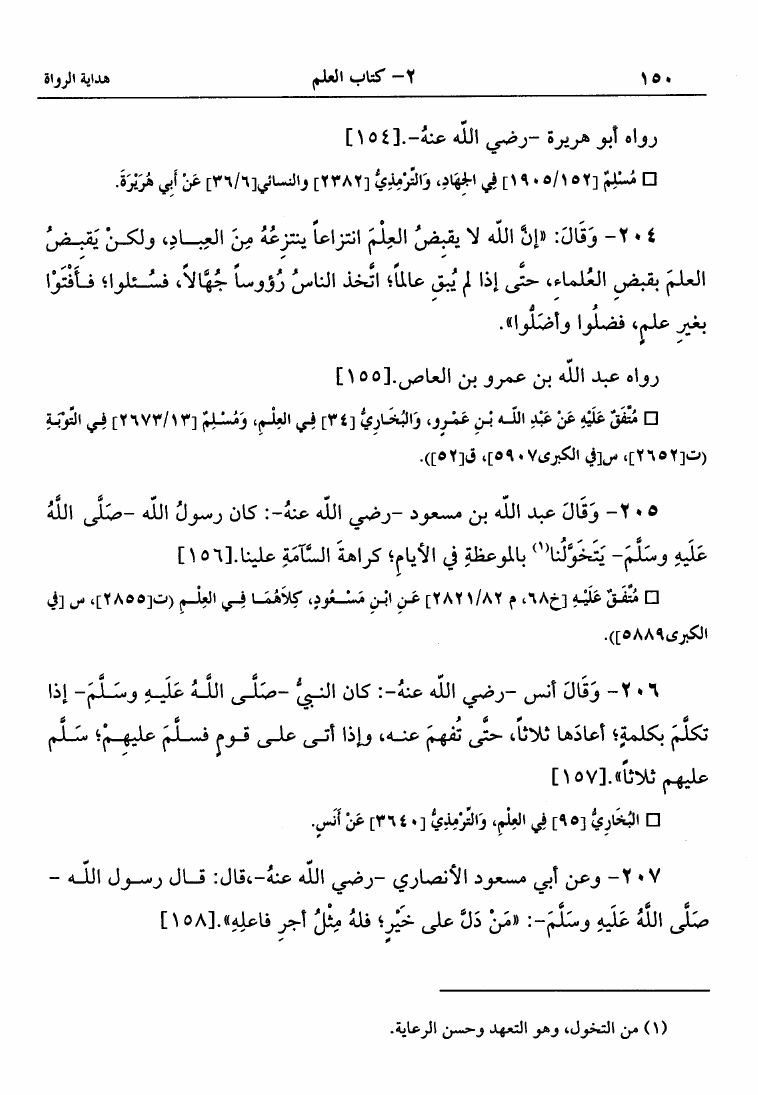 ١٥٠ ٢- كتاب العلم هداية الرواة
رواه أبو هريرة -رضي الله عنهُ-.[١٥٤]
□ مُسْلِمٌ [١٩٠٥/١٥٢] فِي الجِهَادِ، وَالتِّرْمِذِيُّ [٢٣٨٢] والنسائي[٣٦/٦] عَنْ أَبِي هُرَيْرَةَ.
٢٠٤- وَقَالَ: «إنَّ الله لا يقبِضُ العِلْمَ انتزاعاً ينتزِعُهُ مِنَ العِبـادِ، ولكـنْ يَقبِـضُ
العلمَ بقبضِ العُلماءِ، حتَّى إذا لم يُبقِ عالماً؛ اتَّخذ الناسُ رُؤوساً جُهَّالاً، فسُئلوا؛ فـأَفْتَوْا
بغيرِ علمٍ، فضلُّوا وأضَلُّوا».
رواه عبد الله بن عمرو بن العاص.[١٥٥]
□ مُتَّفَقٌ عَلَيْهِ عَنْ عَبْدِ اللـه بْـنِ عَمْـرٍو، وَالبُخَـارِيُّ [٣٤] فِـي العِلْـمِ، وَمُسْـلِمٌ [٢٦٧٣/١٣] فِـي التَّوْبَـةِ
(ت[٢٦٥٢]، س[في الكبرى٥٩٠٧]، ق[٥٢]).
٢٠٥- وَقَالَ عبد الله بن مسعود -رضي الله عنهُ-: كان رسولُ الله -صَلَّى اللَّهُ
عَلَيهِ وسَلَّمَ- يَتَخَوَّلُنا(١) بالموعظةِ في الأيامِ؛ كراهةَ السَّآمَةِ علينا.[١٥٦]
□ مُتَّفَـقٌ عَلَيْـهِ [خ٦٨، م ٢٨٢١/٨٢] عَـنِ ابْـنِ مَسْـعُودٍ، كِلاَهُمَـا فِـي العِلْـمِ (ت[٢٨٥٥]، س [في
الكبرى٥٨٨٩]).
٢٠٦- وَقَالَ أنس -رضي الله عنهُ-: كان النبيُّ -صَلَّـى اللَّـهُ عَلَيـهِ وسَـلَّمَ- إذا
تكلَّمَ بكلمةٍ؛ أعادَها ثلاثاً، حتَّى تُفهمَ عنـه، وإذا أتـى علـى قـومٍ فسـلَّمَ عليهِـمْ؛ سَـلَّم
عليهم ثلاثاً».[١٥٧]
□ البُخَارِيُّ [٩٥] فِي العِلْمِ، وَالتِّرْمِذِيُّ [٣٦٤٠] عَنْ أَنَسٍ.
٢٠٧- وعن أبي مسعود الأنصاري -رضي الله عنهُ-،قال: قـال رسـول اللـه -
صَلَّى اللَّهُ عَلَيهِ وسَلَّمَ-: «مَنْ دَلَّ على خَيْرٍ؛ فلهُ مِثْلُ أجرِ فاعلِهِ».[١٥٨]
(١) من التخول، وهو التعهد وحسن الرعاية.